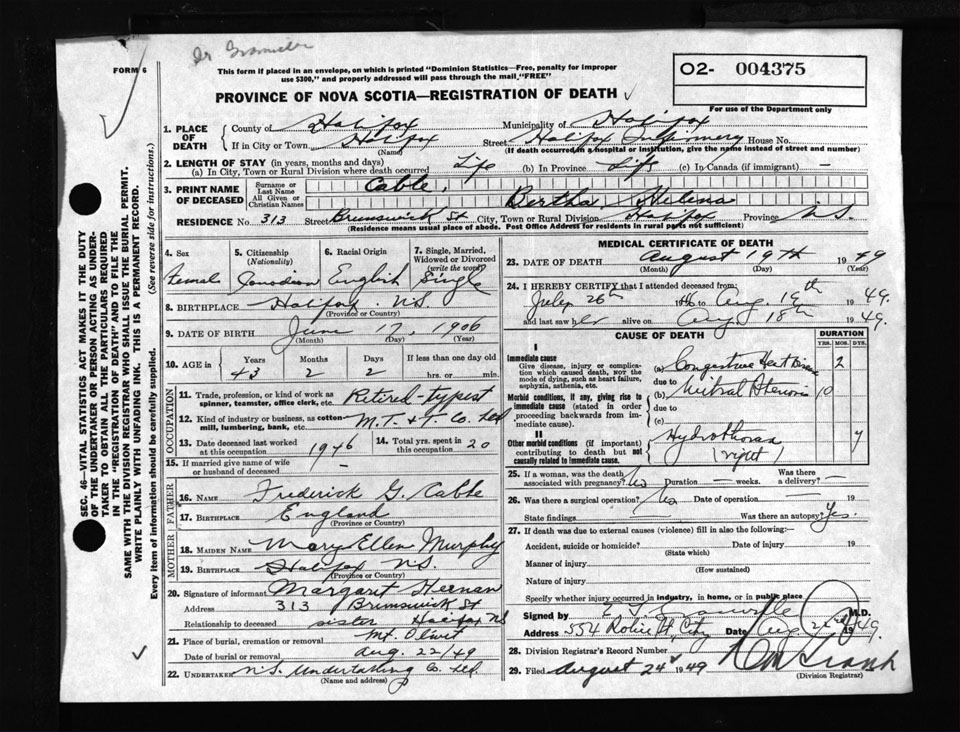 FORM 6
This form if placed in an envelope, on which is printed "Dominion Statistics—Free, penalty for improper
use $300," and properly addressed will pass through the mail "FREE"
O2- 004375
For use of the Department only
PROVINCE OF NOVA SCOTIA—REGISTRATION OF DEATH
SEC. 46—VITAL STATISTICS ACT MAKES IT THE DUTY
OF THE UNDERTAKER OR PERSON ACTING AS UNDER-
TAKER TO OBTAIN ALL THE PARTICULARS REQUIRED
IN THE "REGISTRATION OF DEATH" AND TO FILE THE
SAME WITH THE DIVISION REGISTRAR WHO SHALL ISSUE THE BURIAL PERMIT.
WRITE PLAINLY WITH UNFADING INK. THIS IS A PERMANENT RECORD.
Every item of information should be carefully supplied. (See reverse side for instructions.)
1. PLACE OF DEATH County of Halifax Municipality of Halifax
If in City or Town Halifax (Name) Street Halifax Infirmary House No.
(If death occurred in a hospital or institution, give the name instead of street and number)
2. LENGTH OF STAY (in years, months and days)
(a) In City, Town or Rural Division where death occurred Life (b) In Province Life (c) In Canada (if immigrant) —
3. PRINT NAME OF DECEASED Surname or Last Name Cable,
All Given or Christian Names Bertha Helena
RESIDENCE No. 313 Street Brunswick St City, Town or Rural Division Halifax Province N.S.
(Residence means usual place of abode. Post Office Address for residents in rural parts not sufficient)
4. Sex Female
5. Citizenship (Nationality) Canadian
6. Racial Origin English
7. Single, Married, Widowed or Divorced (write the word) Single
8. BIRTHPLACE Halifax N.S.
(Province or Country)
9. DATE OF BIRTH June 17, 1906
(Month) (Day) (Year)
10. AGE in Years Months Days If less than one day old
43 2 2 hrs. or min.
OCCUPATION
11. Trade, profession, or kind of work as spinner, teamster, office clerk, etc. Retired-typist
12. Kind of industry or business, as cotton-mill, lumbering, bank, etc. M.T. & T. Co. Ltd
13. Date deceased last worked at this occupation 1946
14. Total yrs. spent in this occupation 20
15. If married give name of wife or husband of deceased —
FATHER
16. NAME Frederick G. Cable
17. BIRTHPLACE England
(Province or Country)
MOTHER
18. MAIDEN NAME Mary Ellen Murphy
19. BIRTHPLACE Halifax N.S.
(Province or Country)
20. Signature of informant Margaret Heenan
Address 313 Brunswick St
Relationship to deceased sister Halifax NS
21. Place of burial, cremation or removal Mt. Olivet
Date of burial or removal Aug. 22/49
22. UNDERTAKER N.S. Undertaking Co. Ltd.
(Name and address)
MEDICAL CERTIFICATE OF DEATH
23. DATE OF DEATH August 19th 1949
(Month) (Day) (Year)
24. I HEREBY CERTIFY that I attended deceased from
July 26th 1946 to Aug. 19th 1949.
and last saw her alive on Aug. 18th 1949.
CAUSE OF DEATH DURATION
YRS. MOS. DYS.
I
Immediate cause
Give disease, injury or complication which caused death, not the mode of dying, such as heart failure, asphyxia, asthenia, etc.
(a) Congestive Heart Disease 2
due to
Morbid conditions, if any, giving rise to immediate cause (stated in order proceeding backwards from immediate cause).
(b) Mitral Stenosis 10
due to
(c)
II
Other morbid conditions (if important) contributing to death but not causally related to immediate cause.
Hydrothorax (right)
25. If a woman, was the death associated with pregnancy? No Duration — weeks. Was there a delivery? —
26. Was there a surgical operation? No Date of operation — 19
State findings — Was there an autopsy? Yes.
27. If death was due to external causes (violence) fill in also the following:-
Accident, suicide or homicide? Date of injury 19
(State which)
Manner of injury
(How sustained)
Nature of injury
Specify whether injury occurred in industry, in home, or in public place
Signed by E. F. Granville M.D.
Address 554 Robie St, City Date Aug. 22nd 1949.
28. Division Registrar's Record Number
29. Filed August 24 1949
(Division Registrar)